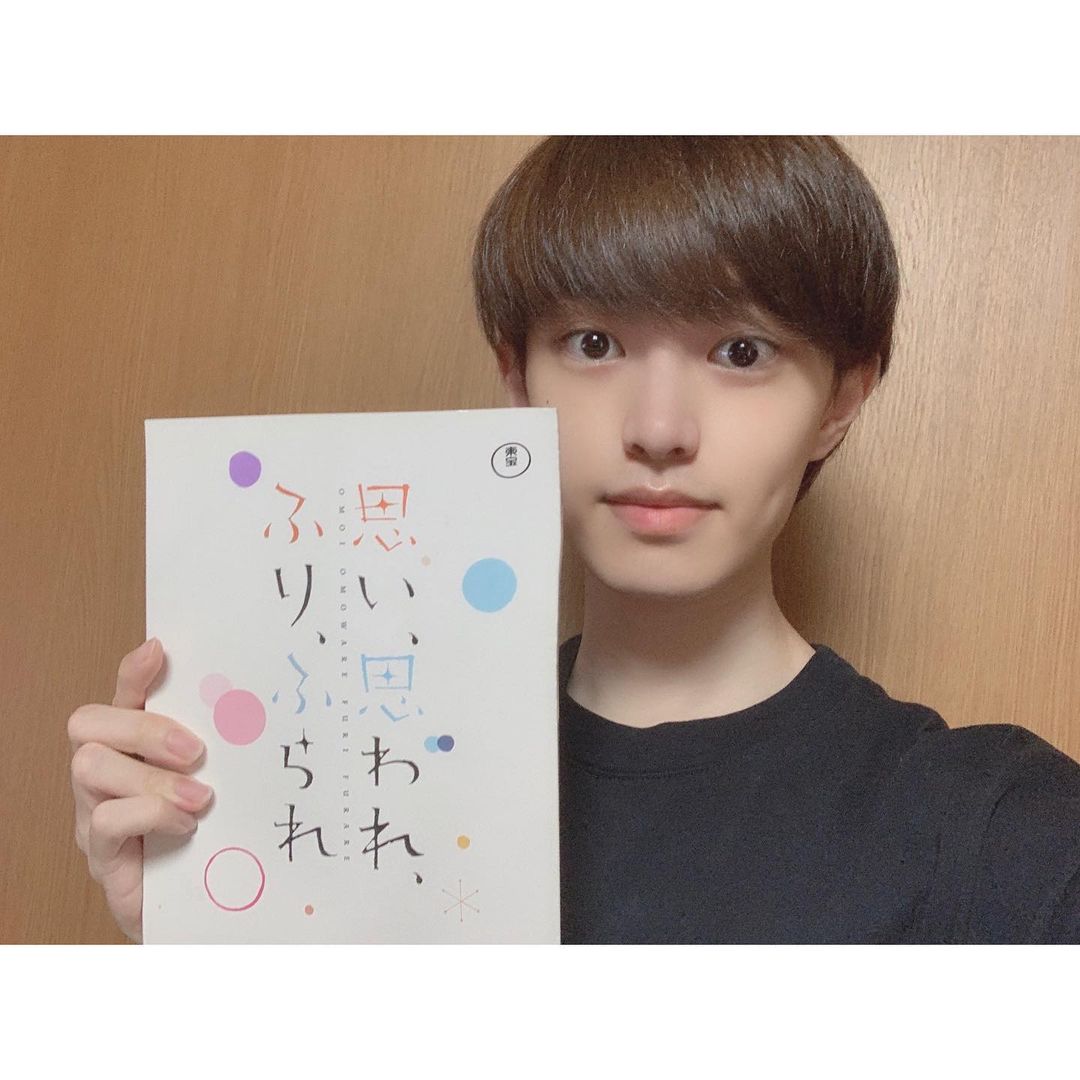 東宝
思い、思われ、
OMOI OMOWARE FURI FURARE
ふり、ふられ